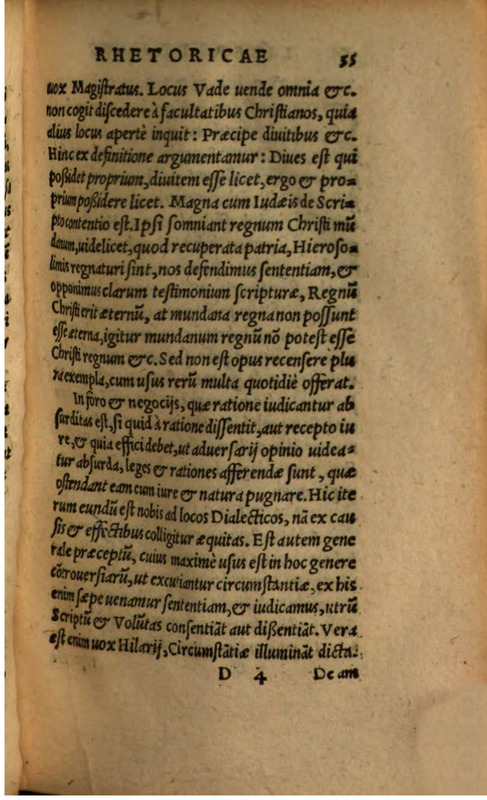 RHETORICAE 55
uox Magistratus. Locus Vade uende omnia &c.
non cogit discedere à facultatibus Christianos, quia
alius locus apertè inquit: Præcipe diuitibus &c.
Hinc ex definitione argumentamur: Diues est qui
possidet proprium, diuitem esse licet, ergo & pro=
prium possidere licet. Magna cum Iudæis de Scri=
pto contentio est. Ipsi somniant regnum Christi mũ
danum, uidelicet, quod recuperata patria, Hieroso=
limis regnaturi sint, nos defendimus sententiam, &
opponimus clarum testimonium scripturæ, Regnũ
Christi erit æternũ, at mundana regna non possunt
esse æterna, igitur mundanum regnũ nõ potest esse
Christi regnum &c. Sed non est opus recensere plu
ra exempla, cum usus rerũ multa quotidiè offerat.
In foro & negocijs, quæ ratione iudicantur ab
surditas est, si quid à ratione dissentit, aut recepto iu
re, & quia effici debet, ut aduersarij opinio uidea=
tur absurda, leges & rationes afferendæ sunt, quæ
ostendant eam cum iure & natura pugnare. Hic ite
rum eundũ est nobis ad locos Dialecticos, nã ex cau
sis & effectibus colligitur æquitas. Est autem gene
rale præceptũ, cuius maximè usus est in hoc genere
cõtrouersiarũ, ut excutiantur circumstantiæ, ex his
enim sæpe uenamur sententiam, & iudicamus, utrũ
Scriptũ & Volũtas consentiãt aut dißentiãt. Vera
est enim uox Hilarij, Circumstãtiæ illuminãt dicta.
D 4 De am